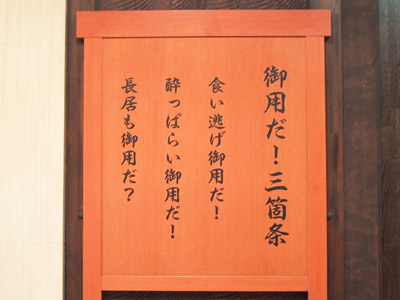 御用だ！三箇条
食い逃げ御用だ！
酔っぱらい御用だ！
長居も御用だ？